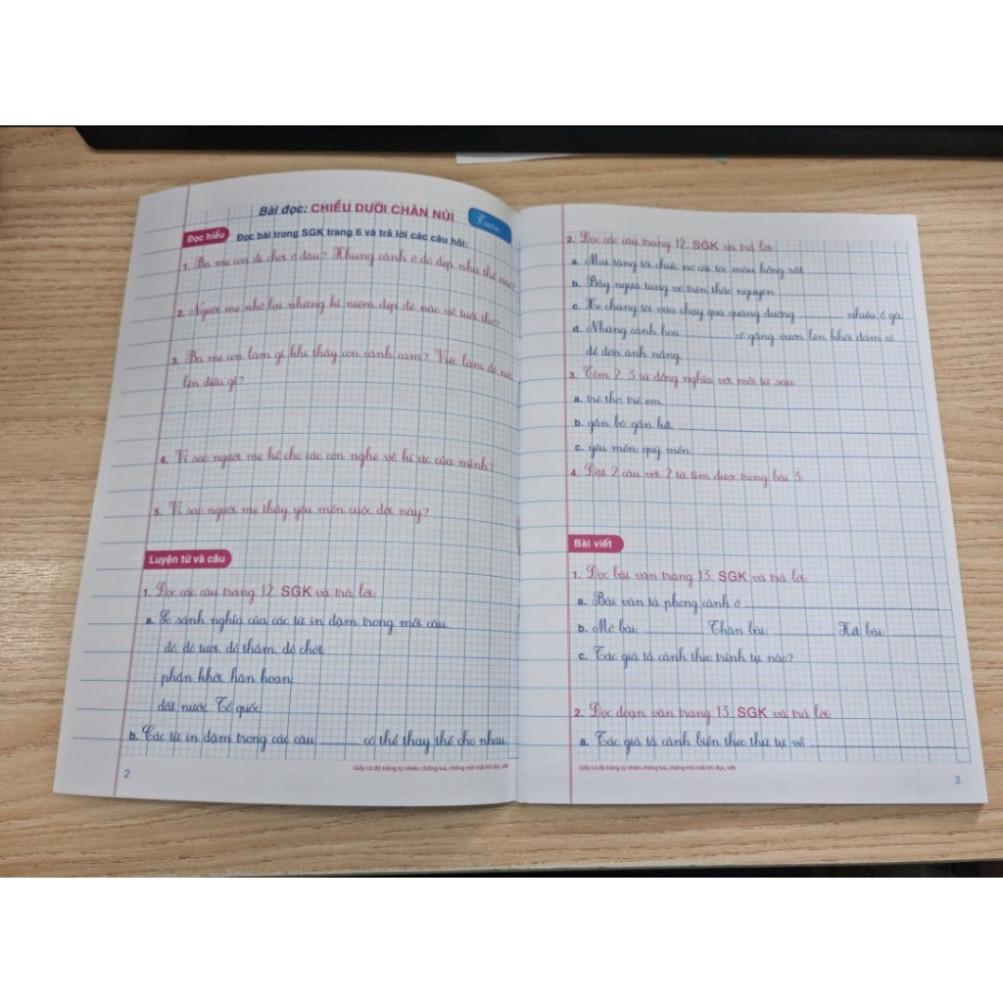 Bài đọc: CHIỀU DƯỚI CHÂN NÚI
Tuần
Đọc hiểu Đọc bài trong SGK trang 6 và trả lời các câu hỏi:
1. Ba mẹ con đi chơi ở đâu? Khung cảnh ở đó đẹp như thế nào?
2. Người mẹ nhớ lại những kỉ niệm đẹp đẽ nào về tuổi thơ?
3. Ba mẹ con làm gì khi thấy con cánh cam? Việc làm đó nói
lên điều gì?
4. Vì sao người mẹ kể cho các con nghe về kí ức của mình?
5. Vì sao người mẹ thấy yêu mến cuộc đời này?
Luyện từ và câu
1. Đọc các câu trang 12 SGK và trả lời:
a. So sánh nghĩa của các từ in đậm trong mỗi câu.
đỏ, đỏ tươi, đỏ thắm, đỏ chót:
phấn khởi, hân hoan:
đất nước, Tổ quốc:
b. Các từ in đậm trong các câu ______ có thể thay thế cho nhau.
2
Giấy có độ trắng tự nhiên chống loá, chống mỏi mắt khi đọc, viết
2. Đọc các câu trang 12 SGK và trả lời:
a. Mai tặng tôi chiếc nơ cài tóc màu hồng rất
b. Bầy ngựa tung vó trên thảo nguyên
c. Xe chúng tôi vừa chạy qua quãng đường ______ nhiều ổ gà.
d. Những cánh hoa ______ cố gắng vươn lên khỏi đám cỏ
để đón ánh nắng.
3. Tìm 2, 3 từ đồng nghĩa với mỗi từ sau:
a. trẻ thơ, trẻ em,
b. gắn bó, gần gũi,
c. yêu mến, quý mến,
4. Đặt 2 câu với 2 từ tìm được trong bài 3.
Bài viết
1. Đọc bài văn trang 13 SGK và trả lời:
a. Bài văn tả phong cảnh ở
b. Mở bài: Thân bài: Kết bài:
c. Tác giả tả cảnh theo trình tự nào?
2. Đọc đoạn văn trang 13 SGK và trả lời:
a. Tác giả tả cảnh biển theo thứ tự về
Giấy có độ trắng tự nhiên chống loá, chống mỏi mắt khi đọc, viết
3